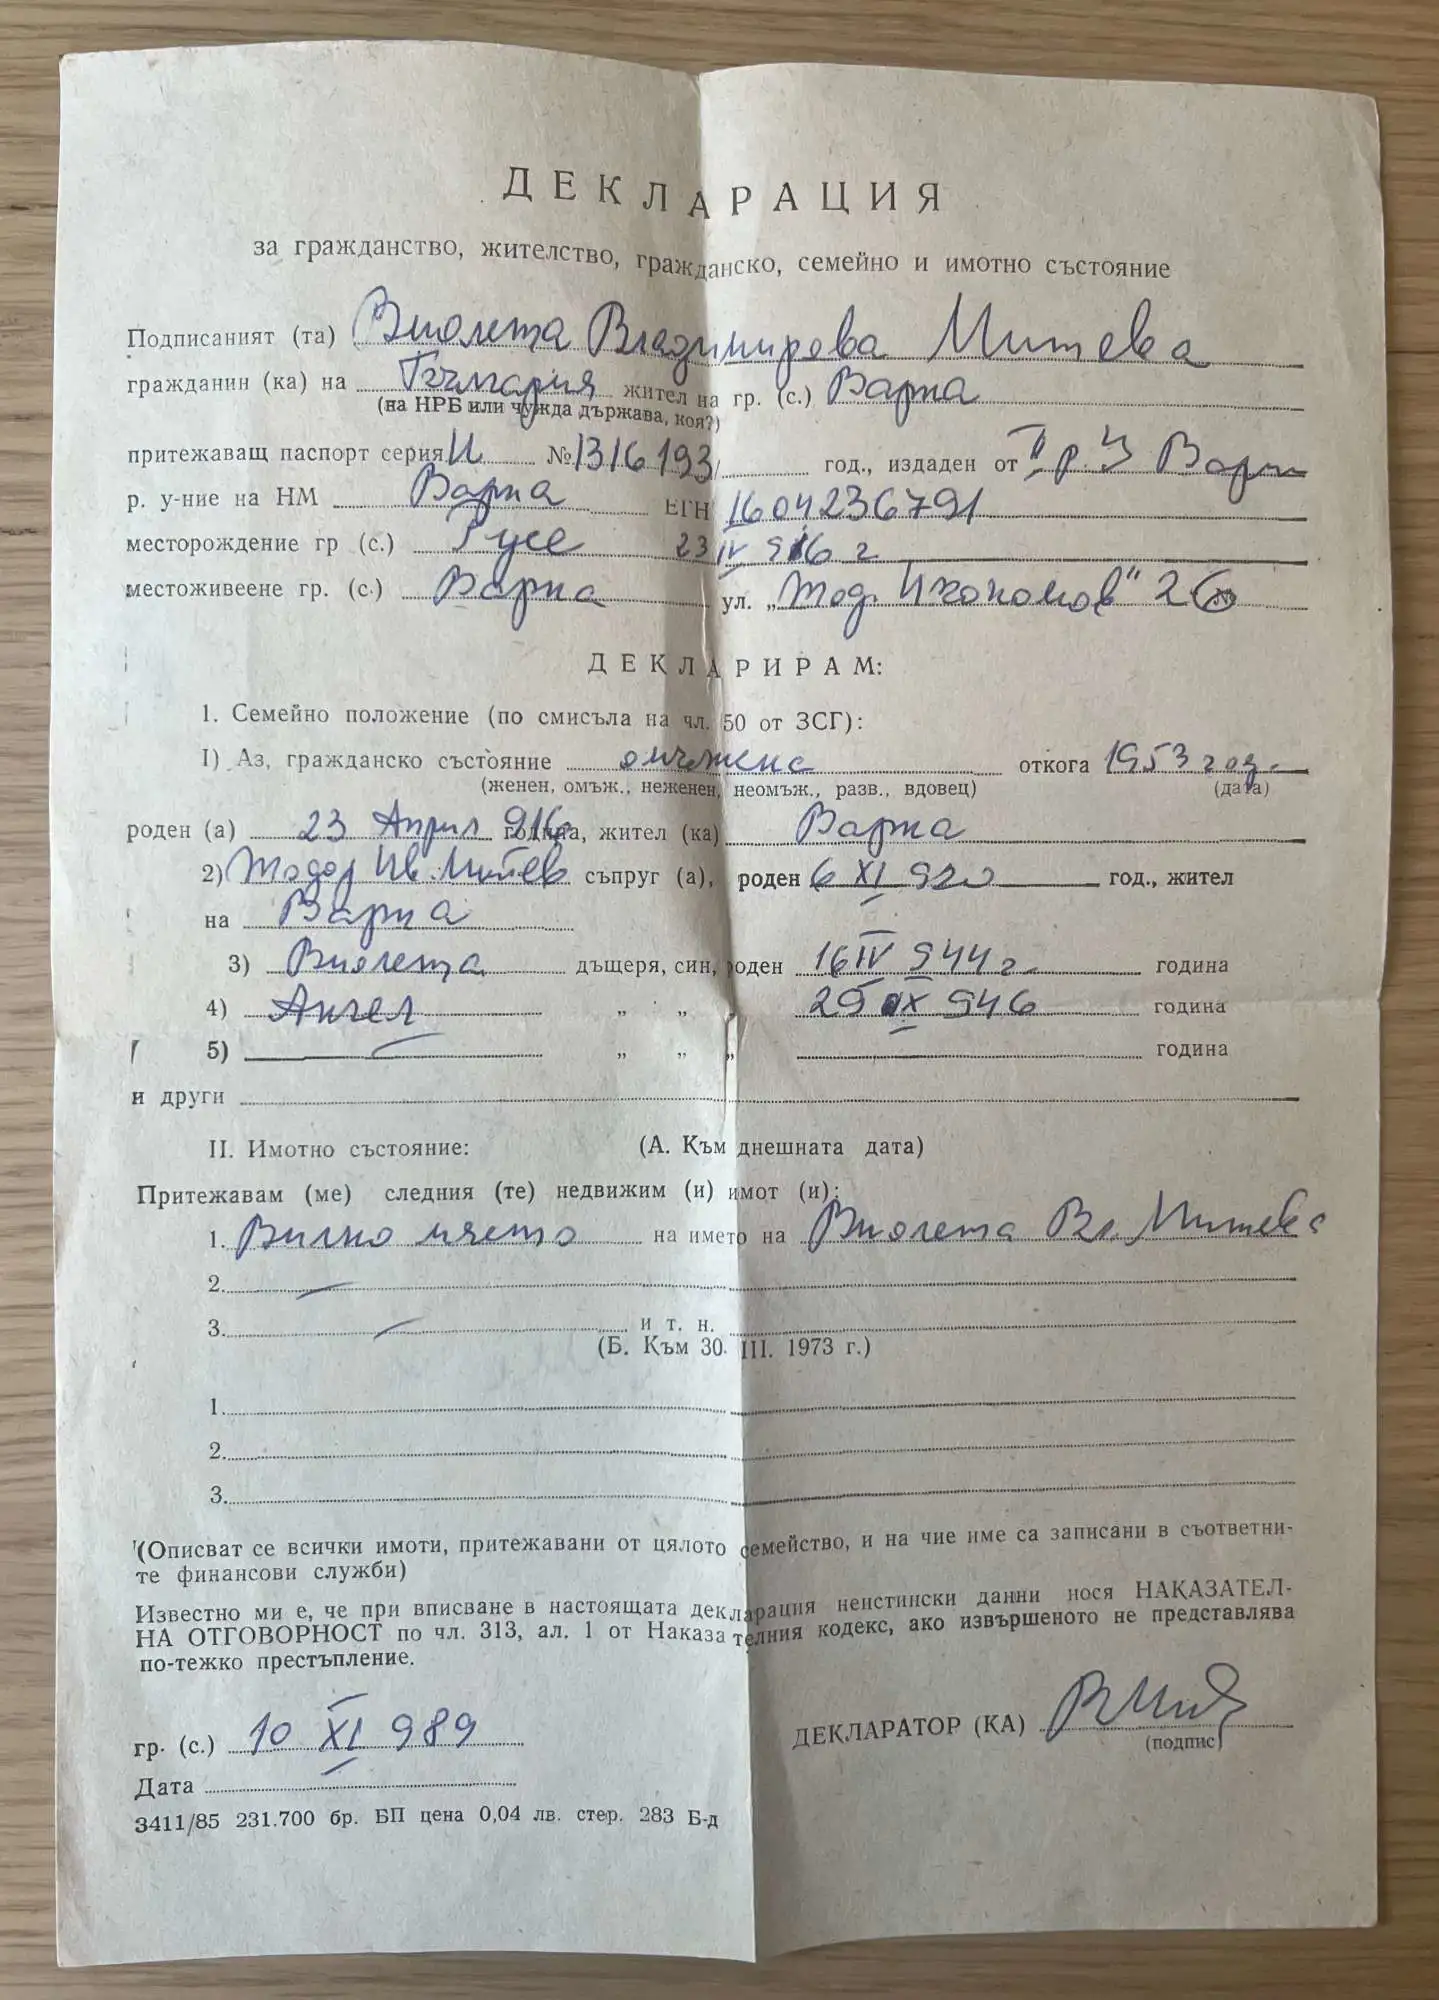 ДЕКЛАРАЦИЯ
за гражданство, жителство, гражданско, семейно и имотно състояние
Подписаният (та) Виолета Владимирова Митева
гражданин (ка) на България жител на гр. (с.) Варна
(на НРБ или чужда държава, коя?)
притежаващ паспорт серия И № 1316193 год., издаден от II р. У Варна
р. у-ние на НМ Варна ЕГН 1604236791
месторождение гр (с.) Русе 23 IV 916 г
местоживеене гр. (с.) Варна ул. „Тод. Икономов" 26
ДЕКЛАРИРАМ:
1. Семейно положение (по смисъла на чл. 50 от ЗСГ):
I) Аз, гражданско състояние омъжена откога 1953 год.
(женен, омъж., неженен, неомъж., разв., вдовец) (дата)
роден (а) 23 Април 916 година, жител (ка) Варна
2) Тодор Ив. Митев съпруг (а), роден 6 XI 920 год., жител
на Варна
3) Виолета дъщеря, син, роден 16 IV 944 г. година
4) Ангел „ „ „ 29 IX 946 година
5) „ „ „ година
и други
II. Имотно състояние: (А. Към днешната дата)
Притежавам (ме) следния (те) недвижим (и) имот (и):
1. Вилно място на името на Виолета Вл. Митева
2.
3. и т. н.
(Б. Към 30. III. 1973 г.)
1.
2.
3.
(Описват се всички имоти, притежавани от цялото семейство, и на чие име са записани в съответни-
те финансови служби)
Известно ми е, че при вписване в настоящата декларация неистински данни нося НАКАЗАТЕЛ-
НА ОТГОВОРНОСТ по чл. 313, ал. 1 от Наказателния кодекс, ако извършеното не представлява
по-тежко престъпление.
гр. (с.) 10 XI 989 ДЕКЛАРАТОР (КА)
(подпис)
Дата
3411/85 231.700 бр. БП цена 0,04 лв. стер. 283 Б-д